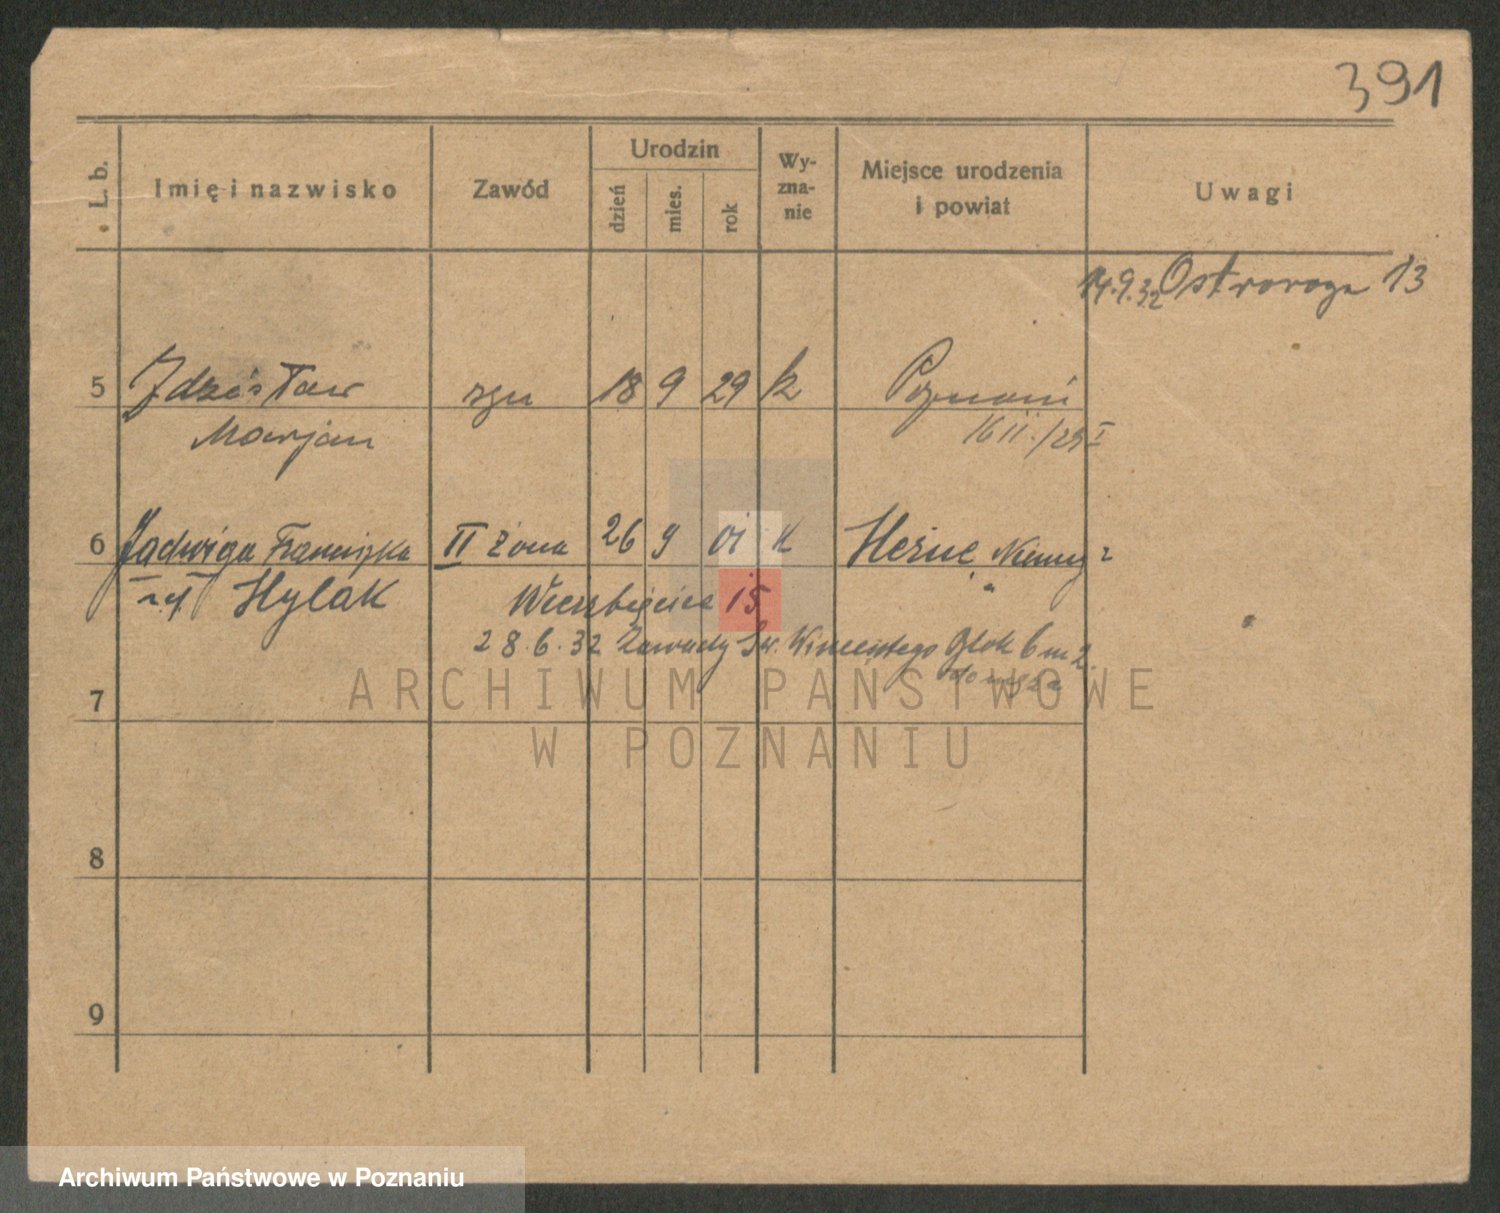 391
L. b.
Imię i nazwisko
Zawód
Urodzin
dzień
mies.
rok
Wy-
zna-
nie
Miejsce urodzenia
i powiat
Uwagi
14.9.32 Ostroroga 13
5 Zdzisław syn 18 9 29 k Poznań
Marjan 16 II./29 I
6 Jadwiga Franciszka II żona 26 9 01 k Herne, Niemcy
Hylak Wierzbięcice 15
28.6.32 Zawady Św. Wincentego 6 m 2.
do męża
7
ARCHIWUM PAŃSTWOWE
W POZNANIU
8
9
Archiwum Państwowe w Poznaniu